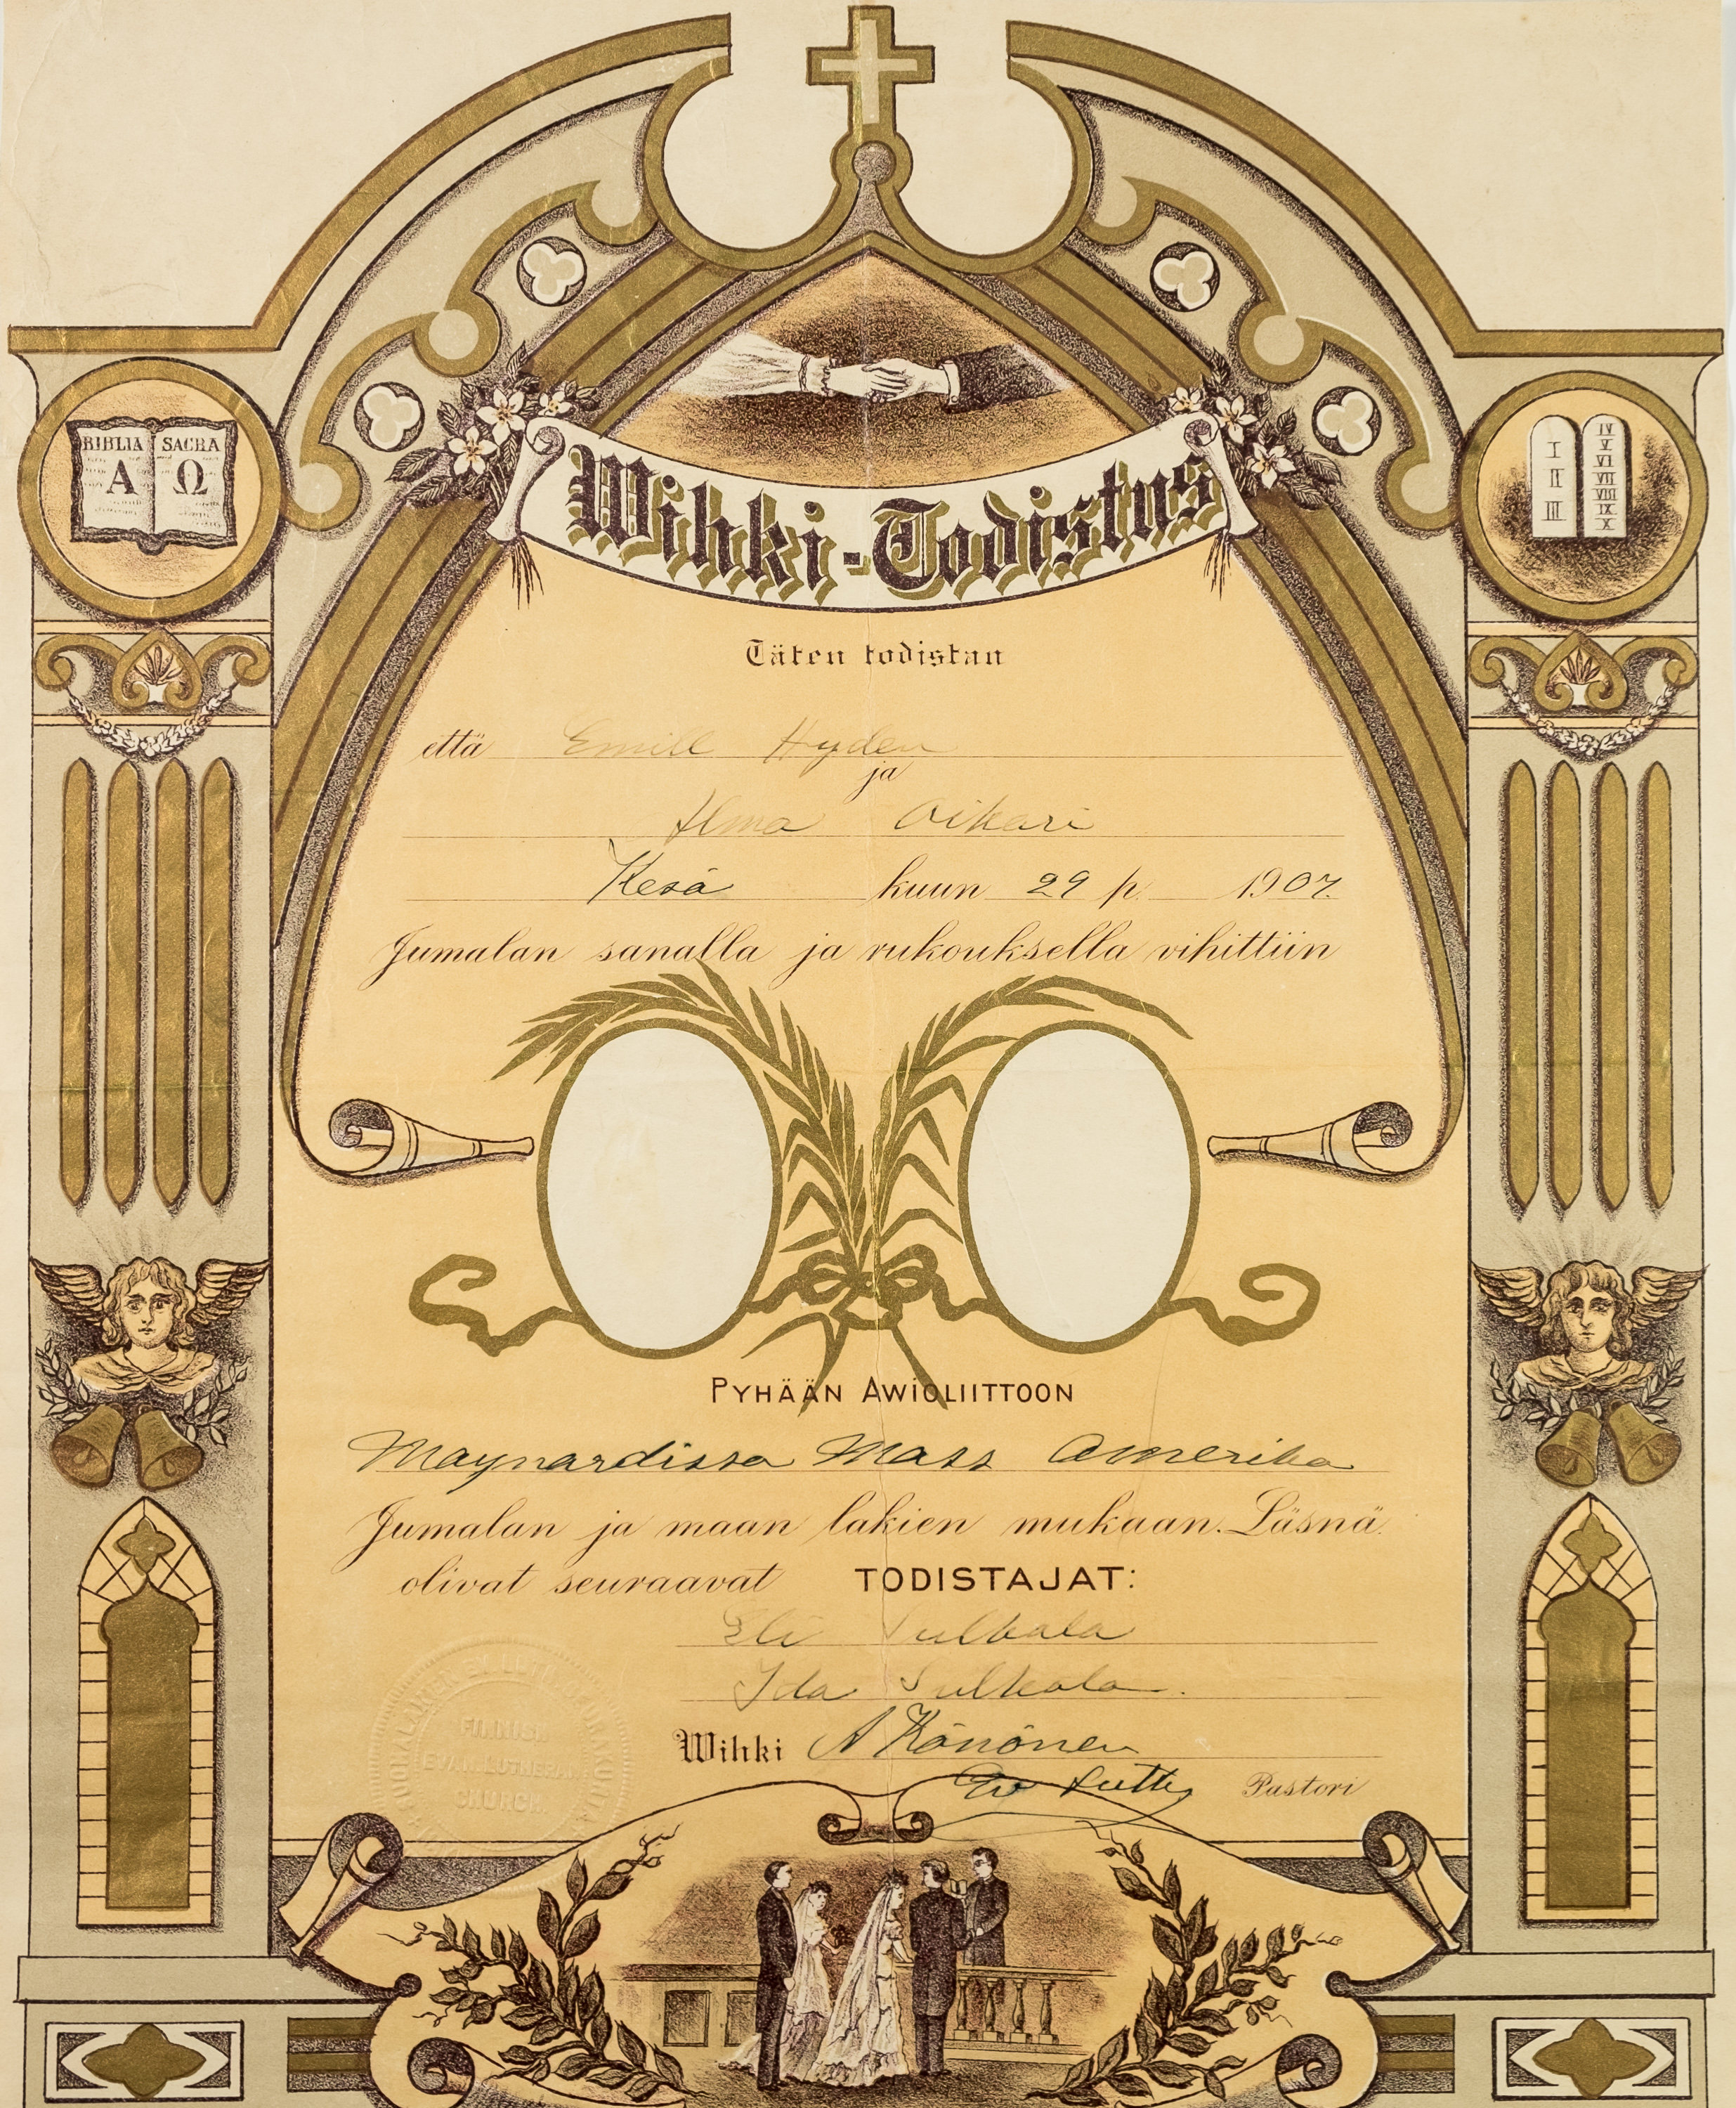 BIBLIA SACRA
Α Ω
I II III
IV V VI VII VIII IX X
Wihki-Todistus
Täten todistan
että Emill Hyden
ja
Ilma Oikari
Kesä kuun 29 p. 1907.
Jumalan sanalla ja rukouksella vihittiin
PYHÄÄN AWIOLIITTOON
Maynardissa Mass Amerika
Jumalan ja maan lakien mukaan. Läsnä
olivat seuraavat TODISTAJAT:
Eli Sulkala
Ida Sulkala.
Wihki A Könönen
Ev Lutt Pastori
FINNISH
EVAN. LUTHERAN
CHURCH